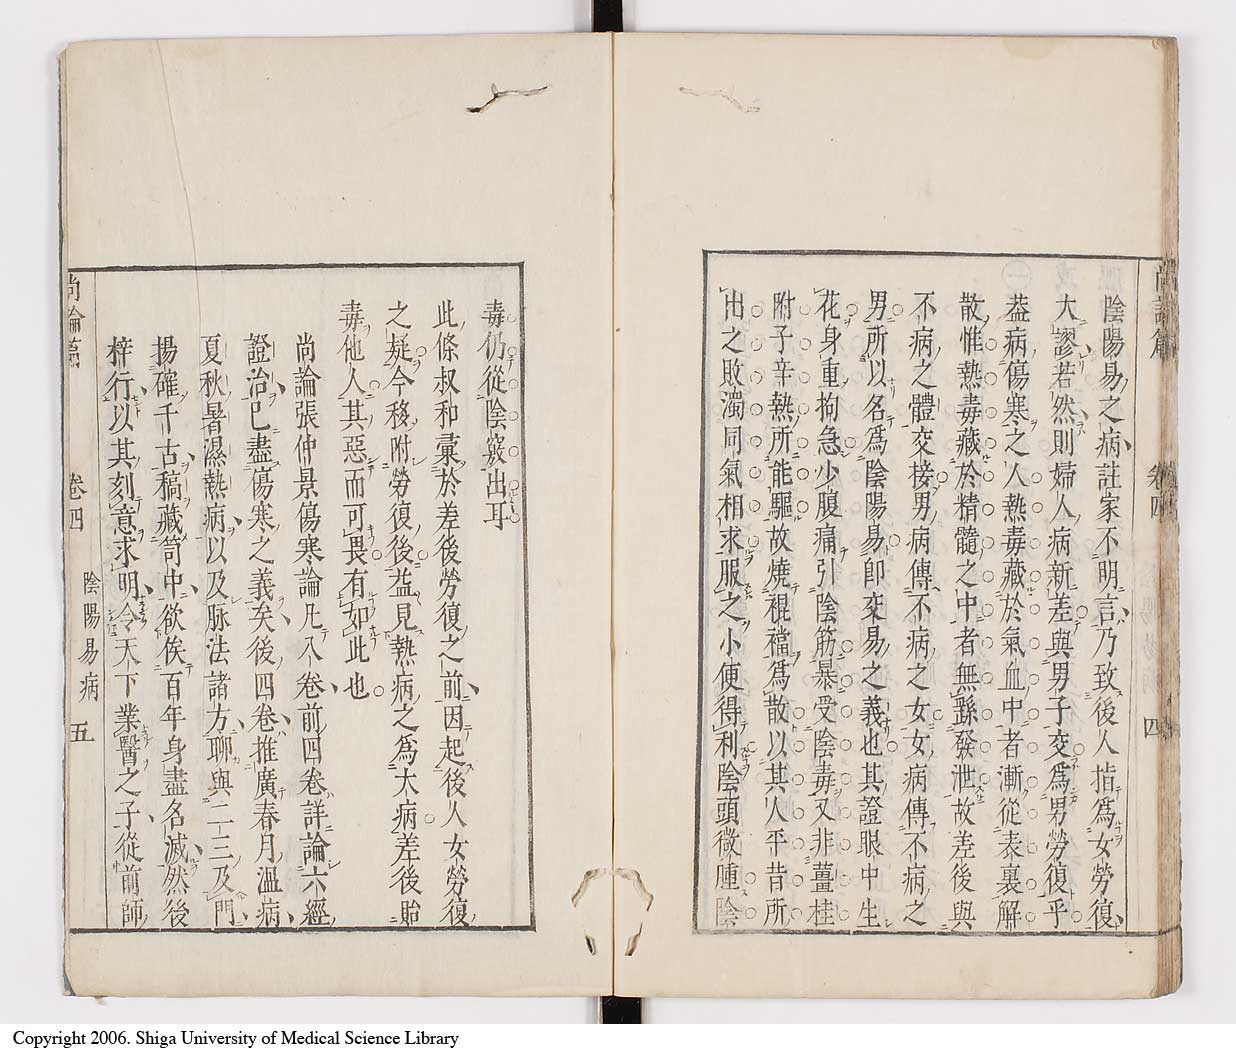 陰陽易之病註家不明言乃致後人指爲女勞復
大謬若然則婦人病新差與男子交爲男勞復乎
葢病傷寒之人熱毒藏於氣血中者漸從表裏解
散惟熱毒藏於精髓之中者無繇發泄故差後與
不病之體交接男病傳不病之女女病傳不病之
男所以名爲陰陽易卽交易之義也其證眼中生
花身重拘急少腹痛引陰筋暴受陰毒又非薑桂
附子辛熱所能驅故燒裩襠爲散以其人平昔所
出之敗濁同氣相求服之小便得利陰頭微腫陰
尚論篇
卷四
四
毒仍從陰竅出耳
此條叔和彙於差後勞復之前因起後人女勞復
之疑今移附勞復後益見熱病之爲大病差後貽
毒他人其惡而可畏有如此也
尚論張仲景傷寒論凡八卷前四卷詳論六經
證治已盡傷寒之義矣後四卷推廣春月溫病
夏秋暑濕熱病以及脉法諸方聊與二三及門
揚確千古稿藏笥中欲俟百年身盡名滅然後
梓行以其刻意求明令天下業醫之子從前師
尚論篇
卷四
陰陽易病
五
Copyright 2006. Shiga University of Medical Science Library